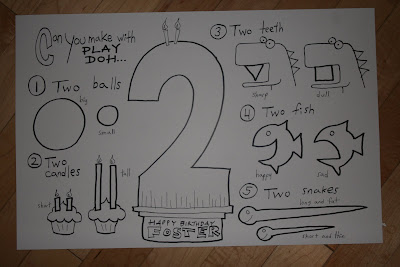 Can you make with
PLAY
DOH...
1 Two balls
big
small
2 Two
candles
short
tall
2
HAPPY BIRTHDAY
FOSTER
3 Two teeth
sharp
dull
4 Two fish
happy
sad
5 Two snakes
long and fat
short and thin